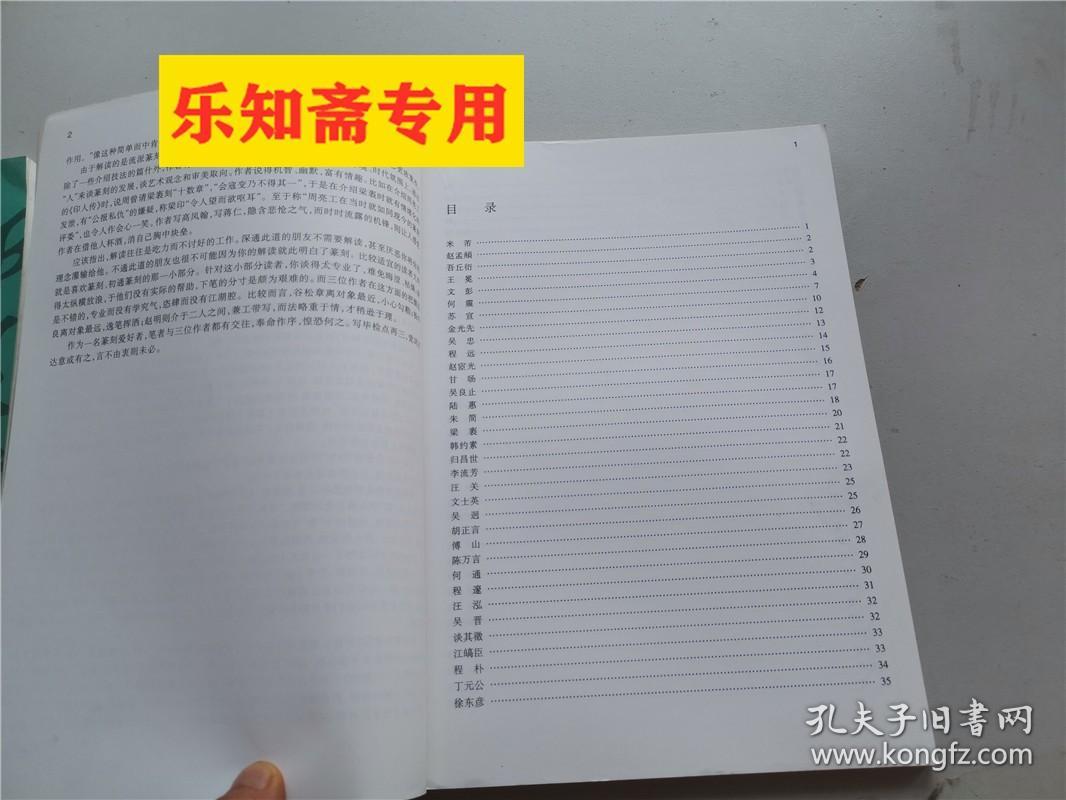 乐知斋专用
2
作用。“像这种简单而中有
由于解读的是流派篆刻
除了一些介绍技法的篇什外
“人”来谈篆刻的发展,谈艺术观念和审美取向。作者说得机智、幽默,富有情趣。比如在介绍
的《印人传》时,说周曾请梁袠刻“十数章”,“会寇变乃不得其一”,于是在介绍梁袠时就有
发泄,有“公报私仇”的嫌疑,称梁印“令人望而欲呕耳”。至于称“周亮工在当时就如同现今的
评委”,也令人作会心一笑。作者写高凤翰,写蒋仁,隐含悲怆之气,而时时流露的机锋,则让人
作者在借他人杯酒,消自己胸中块垒。
应该指出,解读往往是吃力而不讨好的工作。深通此道的朋友不需要解读,甚至厌恶你将
理念灌输给他。不通此道的朋友也很不可能因为你的解读就此明白了篆刻。比较适宜的读者
就是喜欢篆刻、初通篆刻的那一小部分。针对这小部分读者,你谈得太专业了,难免晦涩,枯燥
得太纵横放浪,于他们没有实际的帮助,下笔的分寸是颇为艰难的。而三位作者在这方面的把握
是不错的,专业而没有学究气,恣肆而没有江湖腔。比较而言,谷松章离对象最近,小心勾勒
良离对象最远,逸笔挥洒;赵明则介于二人之间,兼工带写,而法略重于情,才稍逊于理。
作为一名篆刻爱好者,笔者与三位作者都有交往,奉命作序,惶恐何之。写毕检点再三,
达意或有之,言不由衷则未必。
1
目 录
米 芾 1
赵孟頫 2
吾丘衍 2
王 冕 3
文 彭 4
何 震 7
苏 宣 10
金光先 12
吴 忠 13
程 远 14
赵宧光 15
甘 旸 16
吴良止 17
陆 惠 17
朱 简 18
梁 袠 20
韩约素 21
归昌世 22
李流芳 22
汪 关 23
文士英 25
吴 迥 25
胡正言 26
傅 山 27
陈万言 28
何 通 29
程 邃 30
汪 泓 31
吴 晋 32
谈其徵 32
江皜臣 33
程 朴 33
丁元公 34
徐东彦 35
孔夫子旧书网
www.kongfz.com